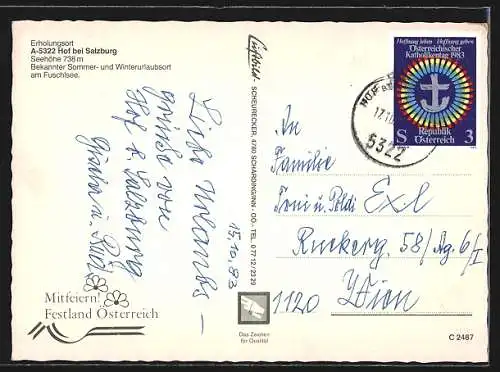 Erholungsort
A-5322 Hof bei Salzburg
Seehöhe 738 m
Bekannter Sommer- und Winterurlaubsort
am Fuschlsee.
Liebe Urlaubs-
grüsse von
Hof b. Salzburg
15.10.83
Mitfeiern!
Festland Österreich
Luftbild - SCHEURECKER, 4780 SCHÄRDING/INN - OÖ. - TEL. 0 77 12/23 29
Das Zeichen
für Qualität
Hoffnung leben Hoffnung geben
Österreichischer
Katholikentag 1983
S Republik 3
Österreich
5322
An
Familie
Toni u. Poldi Exl
Ruckerg. 58/Stg. 6/I
1120 Wien
C 2467